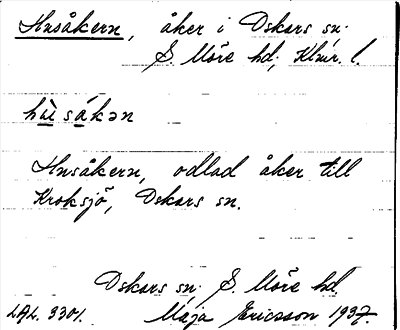 Husåkern, åker i Oskars sn.
S. Möre hd, Klmr. l.
hùsákən
Husåkern, odlad åker till
Kroksjö, Oskars sn.
Oskars sn. S. Möre hd
LAL. 3301. Maja Ericsson 1937.